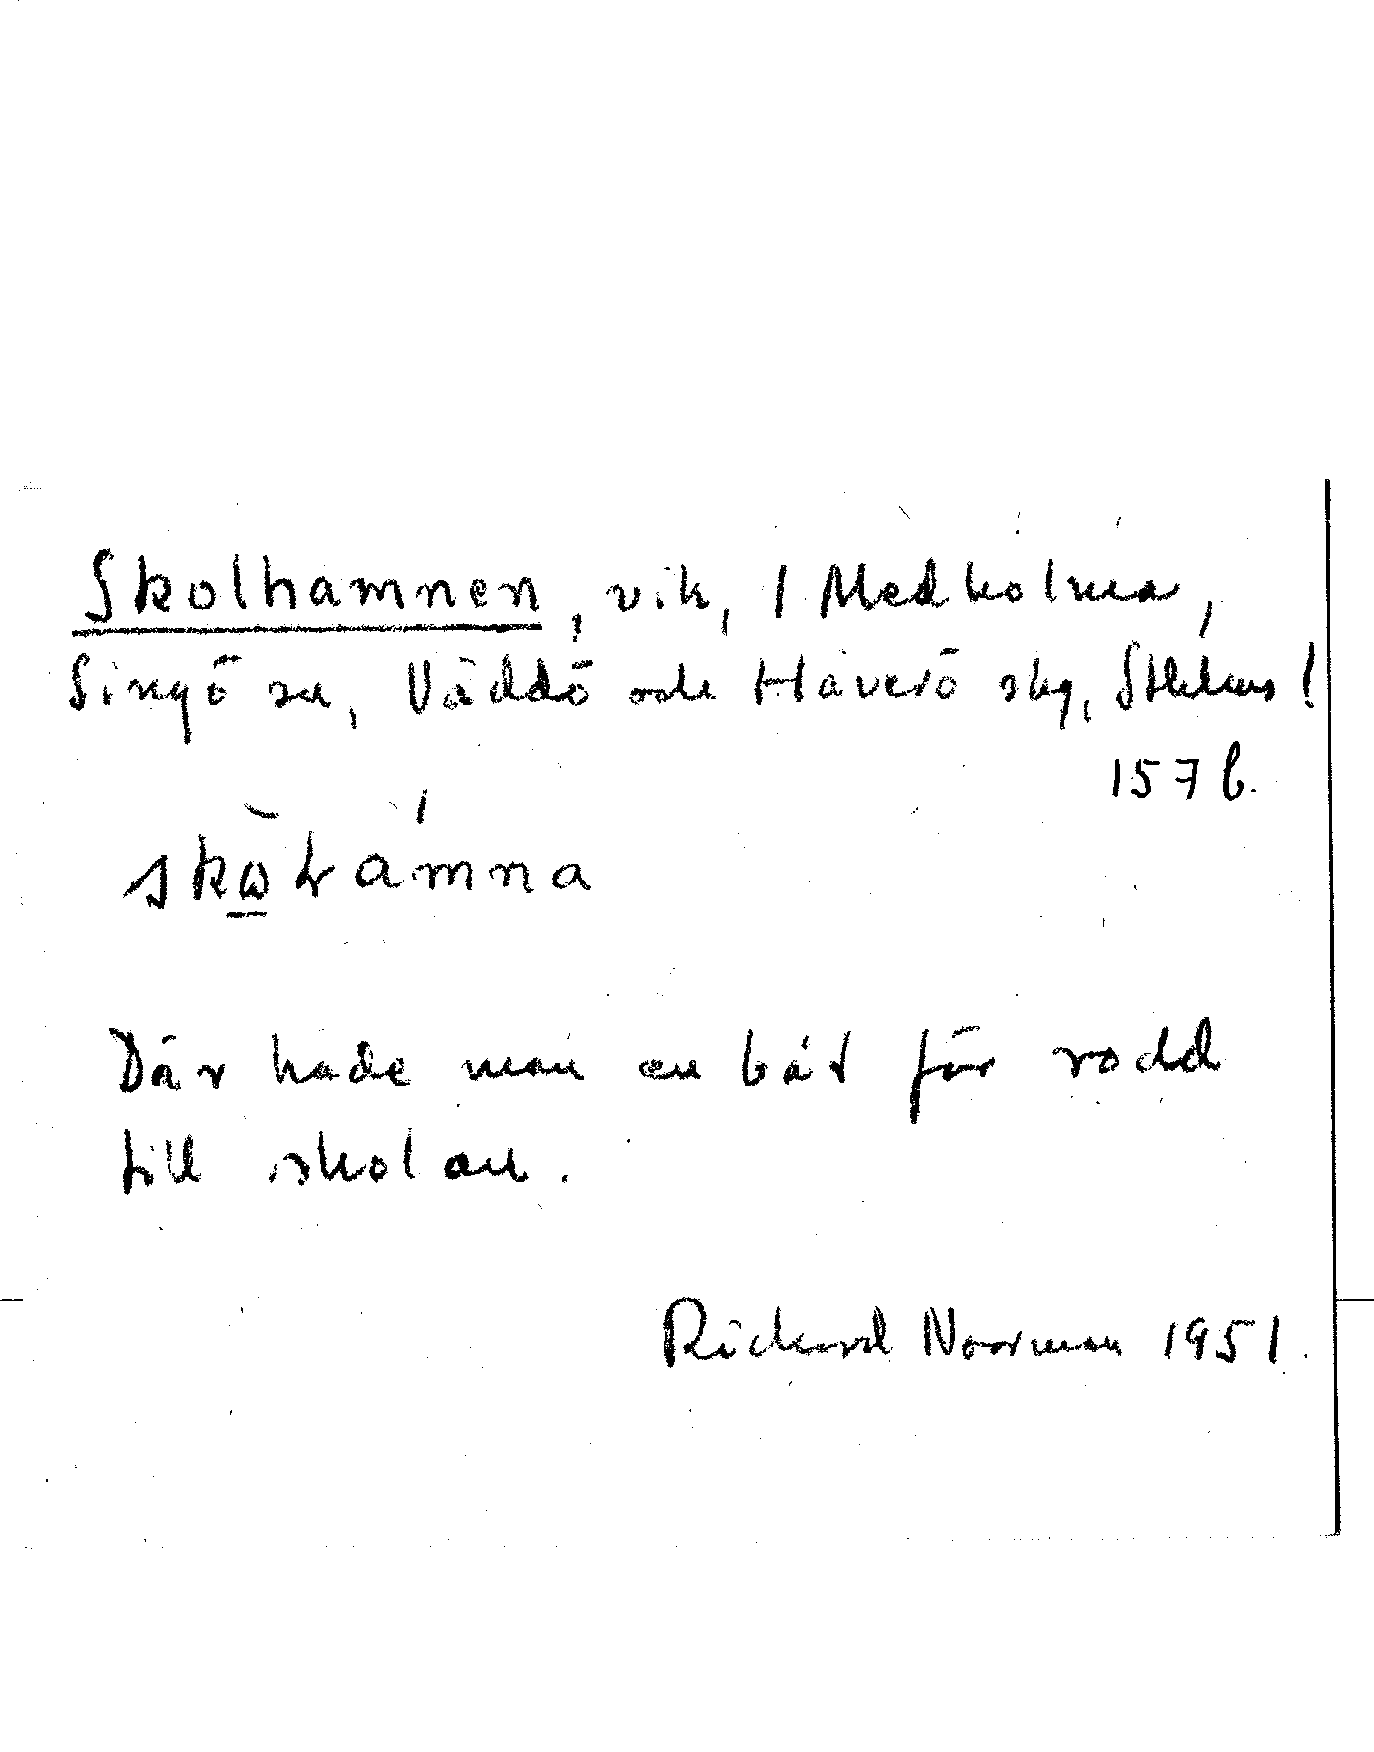 Skolhamnen, vik, 1 Medholma,
Singö sn, Väddö och Häverö skg, Sthlms l
157 b.
Där hade man en båt för rodd
till skolan.
Rickard Norman 1951.